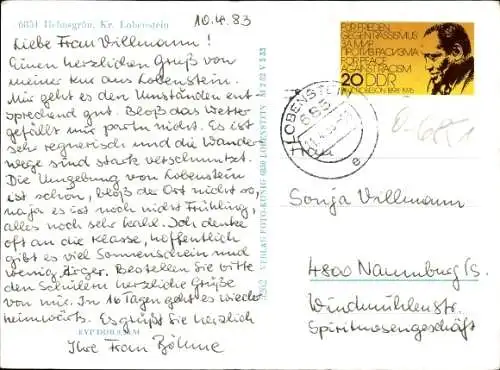 6851 Helmsgrün, Kr. Lobenstein
10.4.83
Liebe Frau Villmann!
Einen herzlichen Gruß von
meiner Kur aus Lobenstein.
Mir geht es den Umständen ent-
sprechend gut. Bloß das Wetter
gefällt mir partou nicht. Es ist
sehr regnerisch und die Wander-
wege sind stark verschmutzt.
Die Umgebung von Lobenstein
ist schön, bloß der Ort nicht so,
naja es ist noch nicht Frühling,
alles noch sehr kahl. Ich denke
oft an die Klasse, hoffentlich
gibt es viel Sonnenschein und
wenig Ärger. Bestellen Sie bitte
den Schülern herzliche Grüße
von mir. In 16 Tagen geht es wieder
heimwärts. Es grüßt Sie herzlich
Ihre Frau Böhme
VERLAG FOTO-KÖNIG 6850 LOBENSTEIN
FÜR FRIEDEN
GEGEN RASSISMUS
ЗА МИР
ПРОТИВ РАСИЗМА
FOR PEACE
AGAINST RACISM
20 DDR
PAUL ROBESON 1898-1976
LOBENSTEIN
e
Sonja Villmann
4800 Naumburg/S.
Windmühlenstr.
Spirituosengeschäft